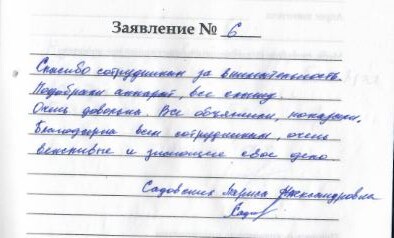 Заявление № 6
Спасибо сотрудникам за внимательность.
Подобрали аппарат, все слышу.
Очень довольна. Все объяснили, показали.
Благодарна всем сотрудникам, очень
вежливые и знающие свое дело
Садовских Лариса Александровна